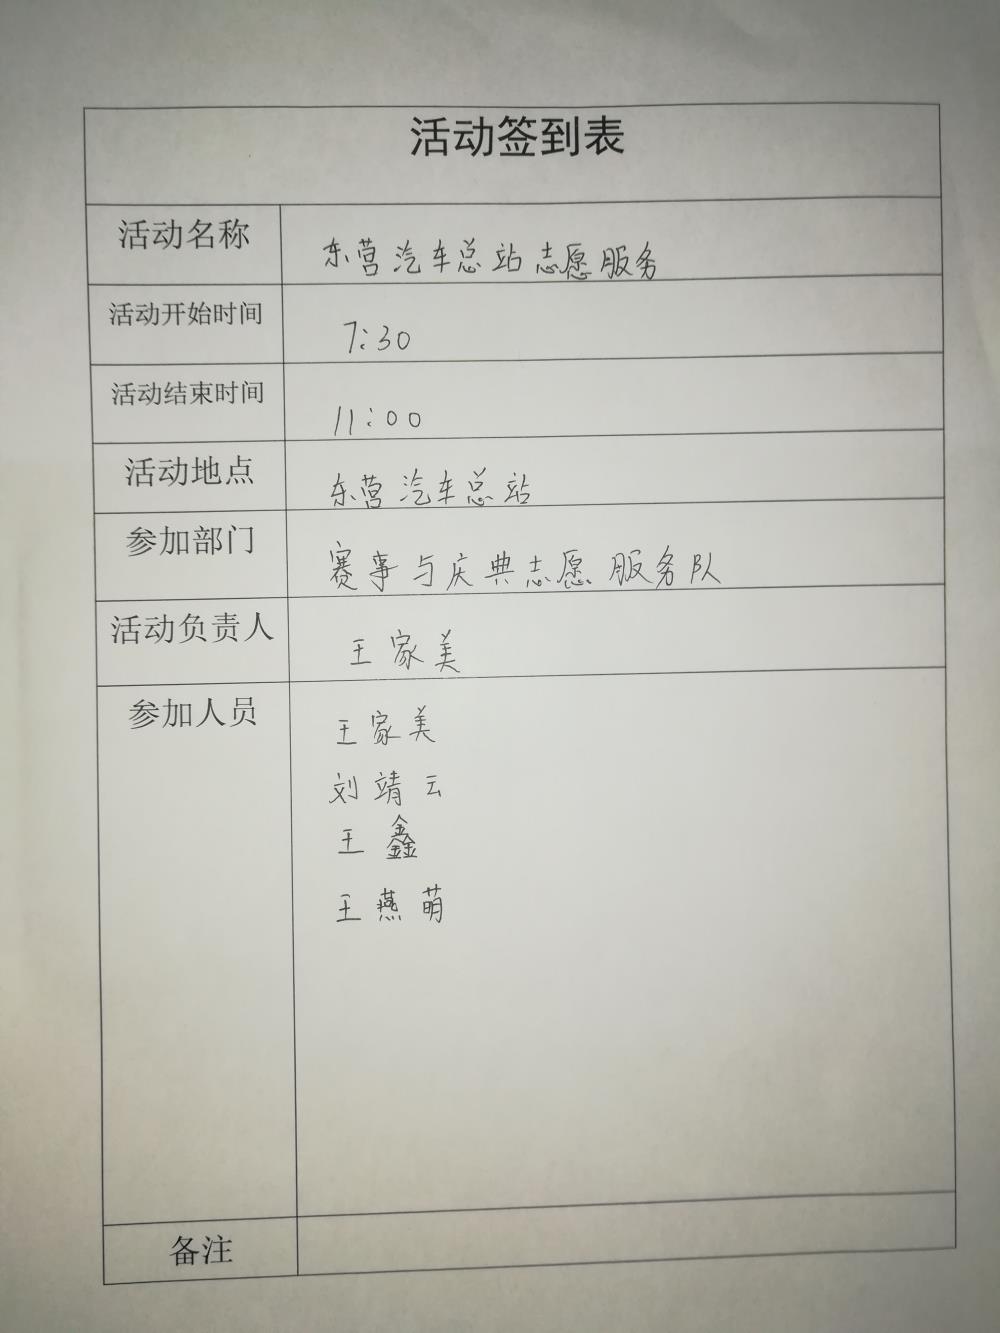 活动签到表
活动名称 东营汽车总站志愿服务
活动开始时间 7:30
活动结束时间 11:00
活动地点 东营汽车总站
参加部门 赛事与庆典志愿服务队
活动负责人 王家美
参加人员 王家美
刘靖云
王鑫
王燕萌
备注